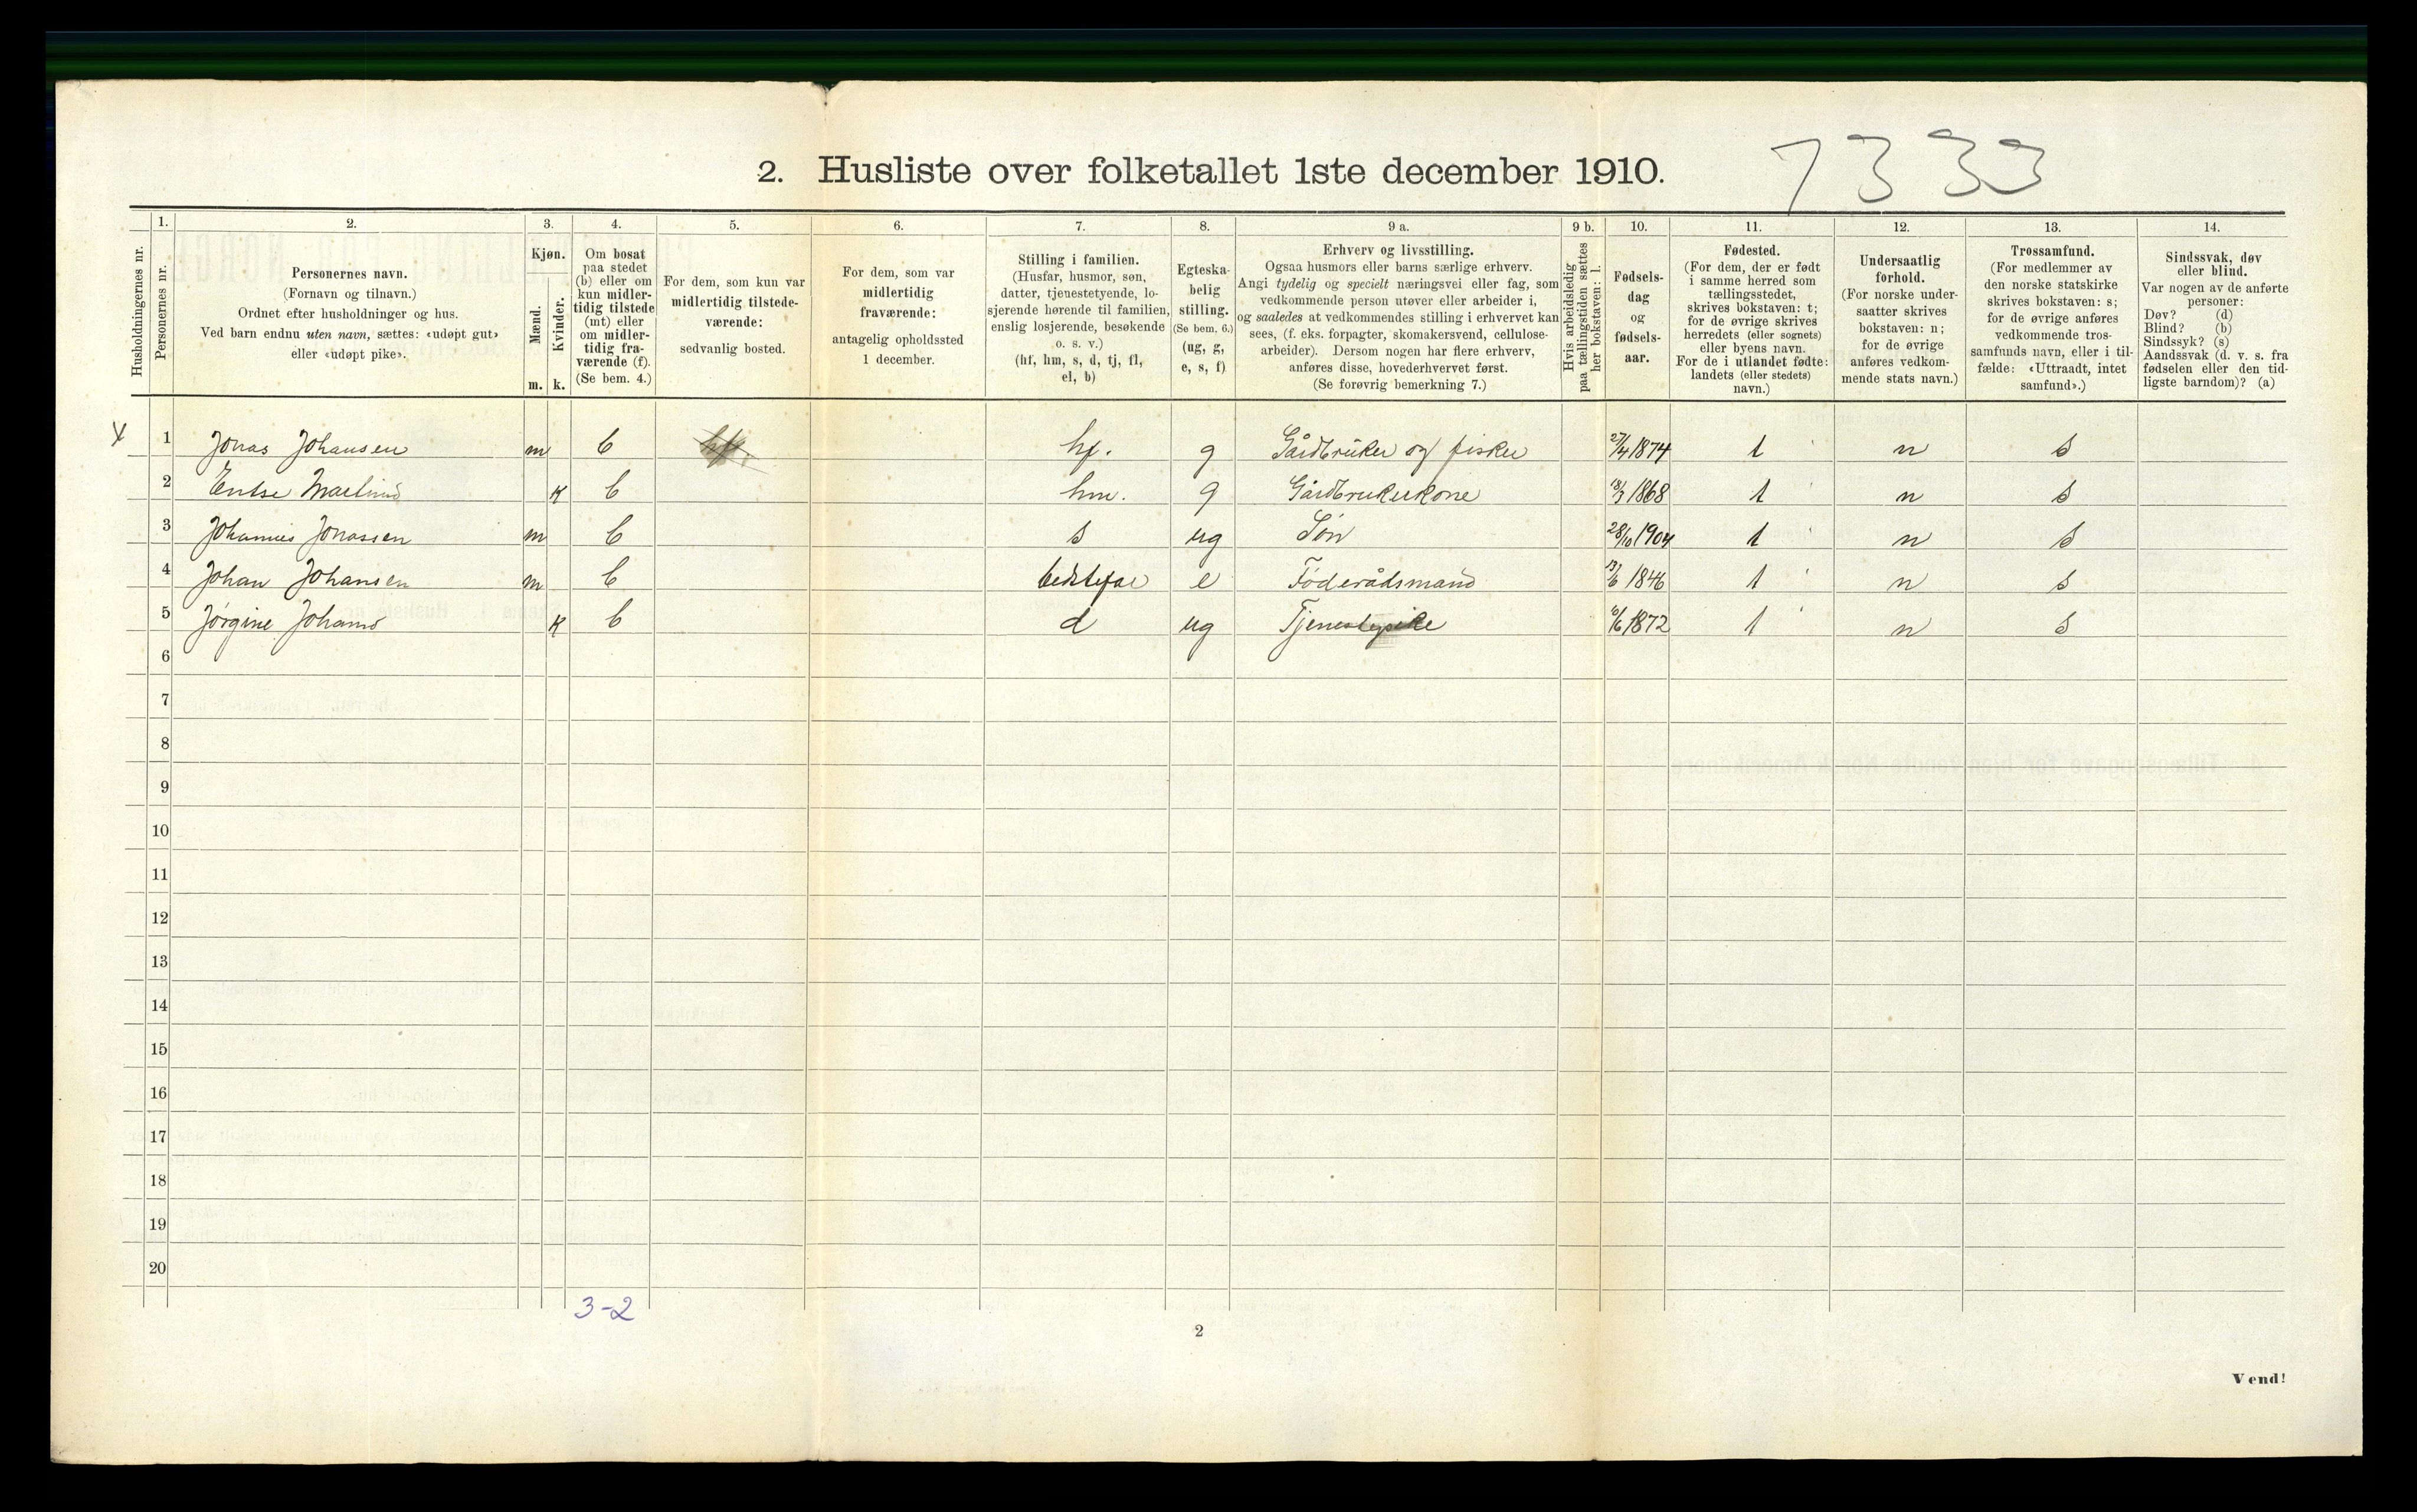 7333
2. Husliste over folketallet 1ste december 1910.
Husholdningernes nr.
1.
Personernes nr.
2.
Personernes navn.
(Fornavn og tilnavn.)
Ordnet efter husholdninger og hus.
Ved barn endnu uten navn, sættes: «udøpt gut»
eller «udøpt pike».
3.
Kjøn.
Mænd.
Kvinder.
m. k.
4.
Om bosat
paa stedet
(b) eller om
kun midler-
tidig tilstede
(mt) eller
om midler-
tidig fra-
værende (f).
(Se bem. 4.)
5.
For dem, som kun var
midlertidig tilstede-
værende:
sedvanlig bosted.
6.
For dem, som var
midlertidig
fraværende:
antagelig opholdssted
1 december.
7.
Stilling i familien.
(Husfar, husmor, søn,
datter, tjenestetyende, lo-
sjerende hørende til familien,
enslig losjerende, besøkende
o. s. v.)
(hf, hm, s, d, tj, fl,
el, b)
8.
Egteska-
belig
stilling.
(Se bem. 6.)
(ug, g,
e, s, f)
9 a.
Erhverv og livsstilling.
Ogsaa husmors eller barns særlige erhverv.
Angi tydelig og specielt næringsvei eller fag, som
vedkommende person utøver eller arbeider i,
og saaledes at vedkommendes stilling i erhvervet kan
sees, (f. eks. forpagter, skomakersvend, cellulose-
arbeider). Dersom nogen har flere erhverv,
anføres disse, hovederhvervet først.
(Se forøvrig bemerkning 7.)
9 b.
Hvis arbeidsledig
paa tællingstiden sættes
her bokstaven: l.
10.
Fødsels-
dag
og
fødsels-
aar.
11.
Fødested.
(For dem, der er født
i samme herred som
tællingsstedet,
skrives bokstaven: t;
for de øvrige skrives
herredets (eller sognets)
eller byens navn.
For de i utlandet fødte:
landets (eller stedets)
navn.)
12.
Undersaatlig
forhold.
(For norske under-
saatter skrives
bokstaven: n;
for de øvrige
anføres vedkom-
mende stats navn.)
13.
Trossamfund.
(For medlemmer av
den norske statskirke
skrives bokstaven: s;
for de øvrige anføres
vedkommende tros-
samfunds navn, eller i til-
fælde: «Uttraadt, intet
samfund».)
14.
Sindssvak, døv
eller blind.
Var nogen av de anførte
personer:
Døv? (d)
Blind? (b)
Sindssyk? (s)
Aandssvak (d. v. s. fra
fødselen eller den tid-
ligste barndom)? (a)
x 1 Jonas Johansen m b hf. g Gårdbruker og fisker 27/4 1874 t n s
2 k b hm. g Gårdbrukerkone 18/3 1868 t n s
3 Johannes Jonassen m b s ug Søn 28/10 1904 t n s
4 Johan Johansen m b bedstefar e Föderådsmand 13/6 1846 t n s
5 Jørgine Johansd k b d ug Tjenestepike 6/6 1872 t n s
6
7
8
9
10
11
12
13
14
15
16
17
18
19
20
3-2
2
Vend!